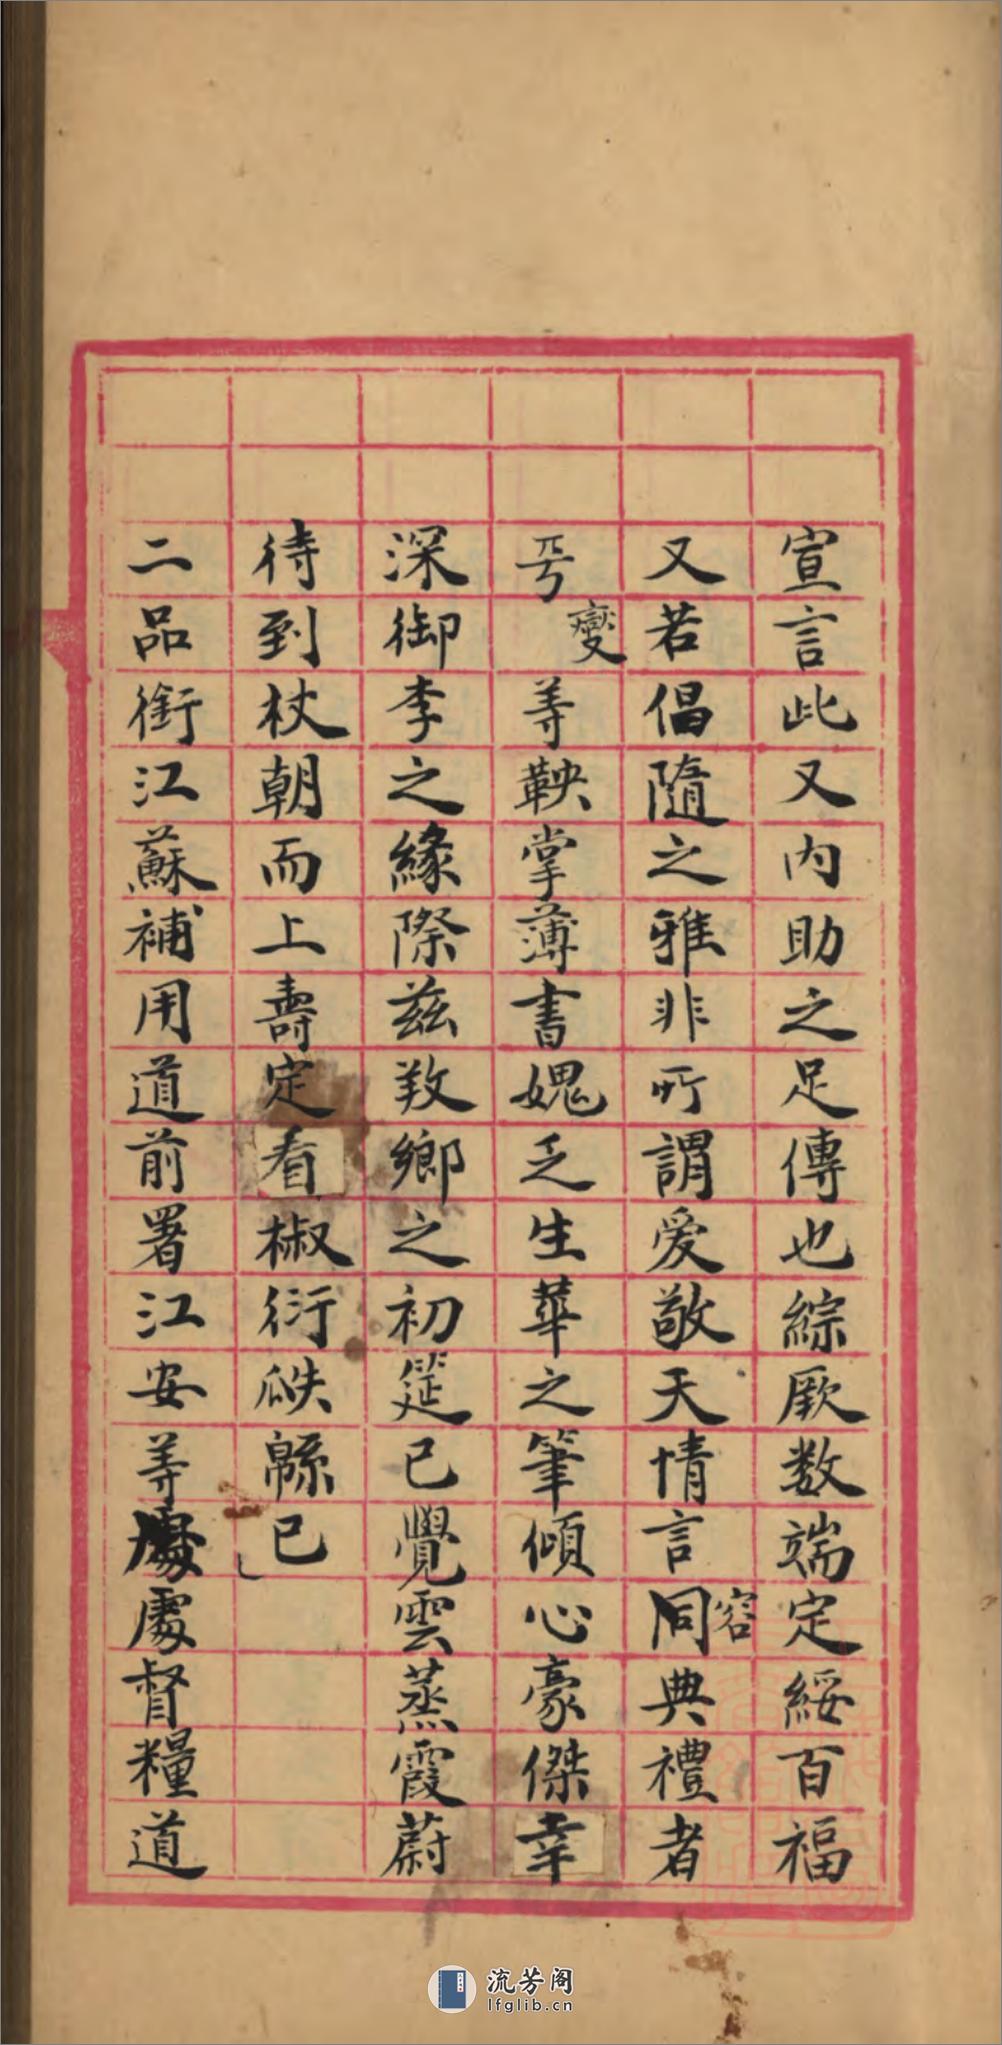 宣言此又内助之足傳也綜厥数端定綏百福
又若倡隨之雅非所謂爱敬天情言容同典禮者
兮變等鞅掌薄書媿乏生華之筆傾心豪傑幸
深御李之緣際茲敎鄉之初筵已覺雲蒸霞蔚
待到杖朝而上壽定看椒衍瓞緜已
二品銜江蘇補用道前署江安等處督糧道
流芳阁
lfglib.cn